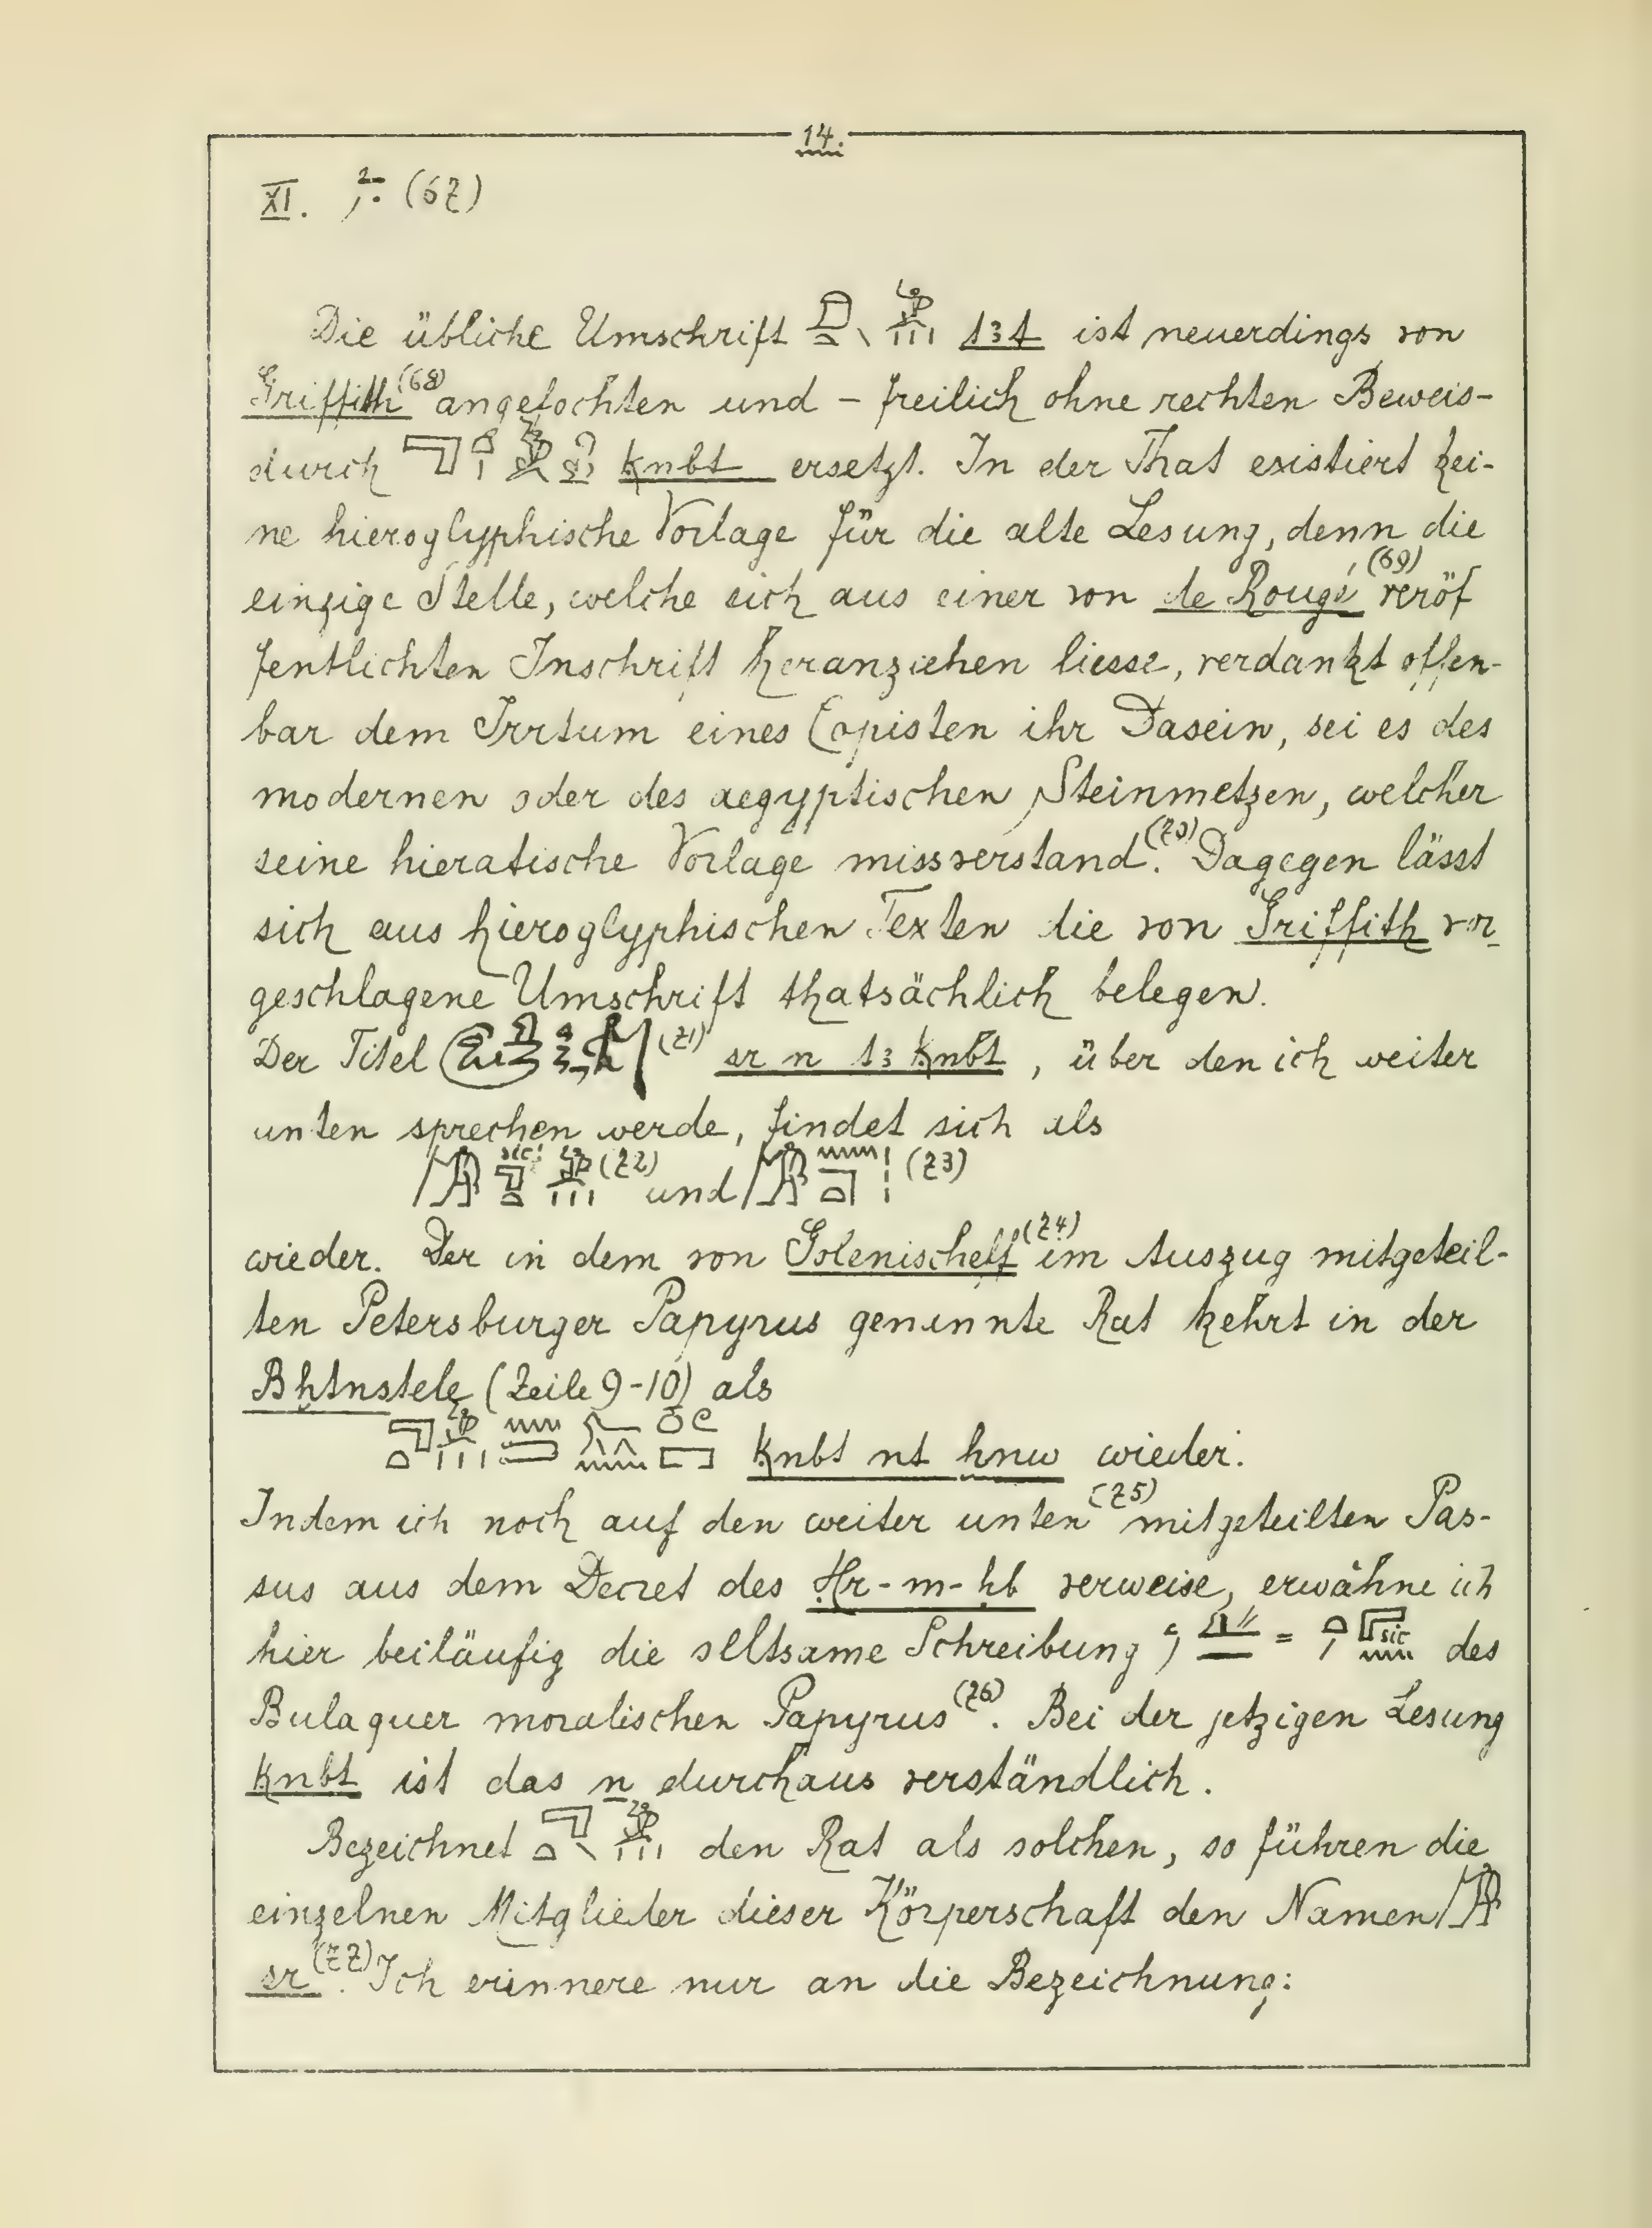 14.
XI. (67)
Die übliche Umschrift t3t ist neuerdings von
Griffith (68) angefochten und – freilich ohne rechten Beweis –
durch ḳnbt ersetzt. In der That existiert kei-
ne hieroglyphische Vorlage für die alte Lesung, denn die
einzige Stelle, welche sich aus einer von de Rougé (69) veröf
fentlichten Inschrift heranziehen liesse, verdankt offen-
bar dem Irrtum eines Copisten ihr Dasein, sei es des
modernen oder des aegyptischen Steinmetzen, welcher
seine hieratische Vorlage missverstand (70). Dagegen lässt
sich aus hieroglyphischen Texten die von Griffith vor-
geschlagene Umschrift thatsächlich belegen.
Der Titel (71) sr n t3 ḳnbt, über den ich weiter
unten sprechen werde, findet sich als
sic! (72) und (73)
wieder. Der in dem von Golenischeff (74) im Auszug mitgeteil-
ten Petersburger Papyrus genannte Rat kehrt in der
Bḫtnstele (Zeile 9-10) als
ḳnbt nt ḫnw wieder.
Indem ich noch auf den weiter unten (75) mitgeteilten Pas-
sus aus dem Decret des Ḥr-m-ḥb verweise, erwähne ich
hier beiläufig die seltsame Schreibung = sic des
Bulaquer moralischen Papyrus (76). Bei der jetzigen Lesung
ḳnbt ist das n durchaus verständlich.
Bezeichnet den Rat als solchen, so führen die
einzelnen Mitglieder dieser Körperschaft den Namen
sr (77). Ich erinnere nur an die Bezeichnung: